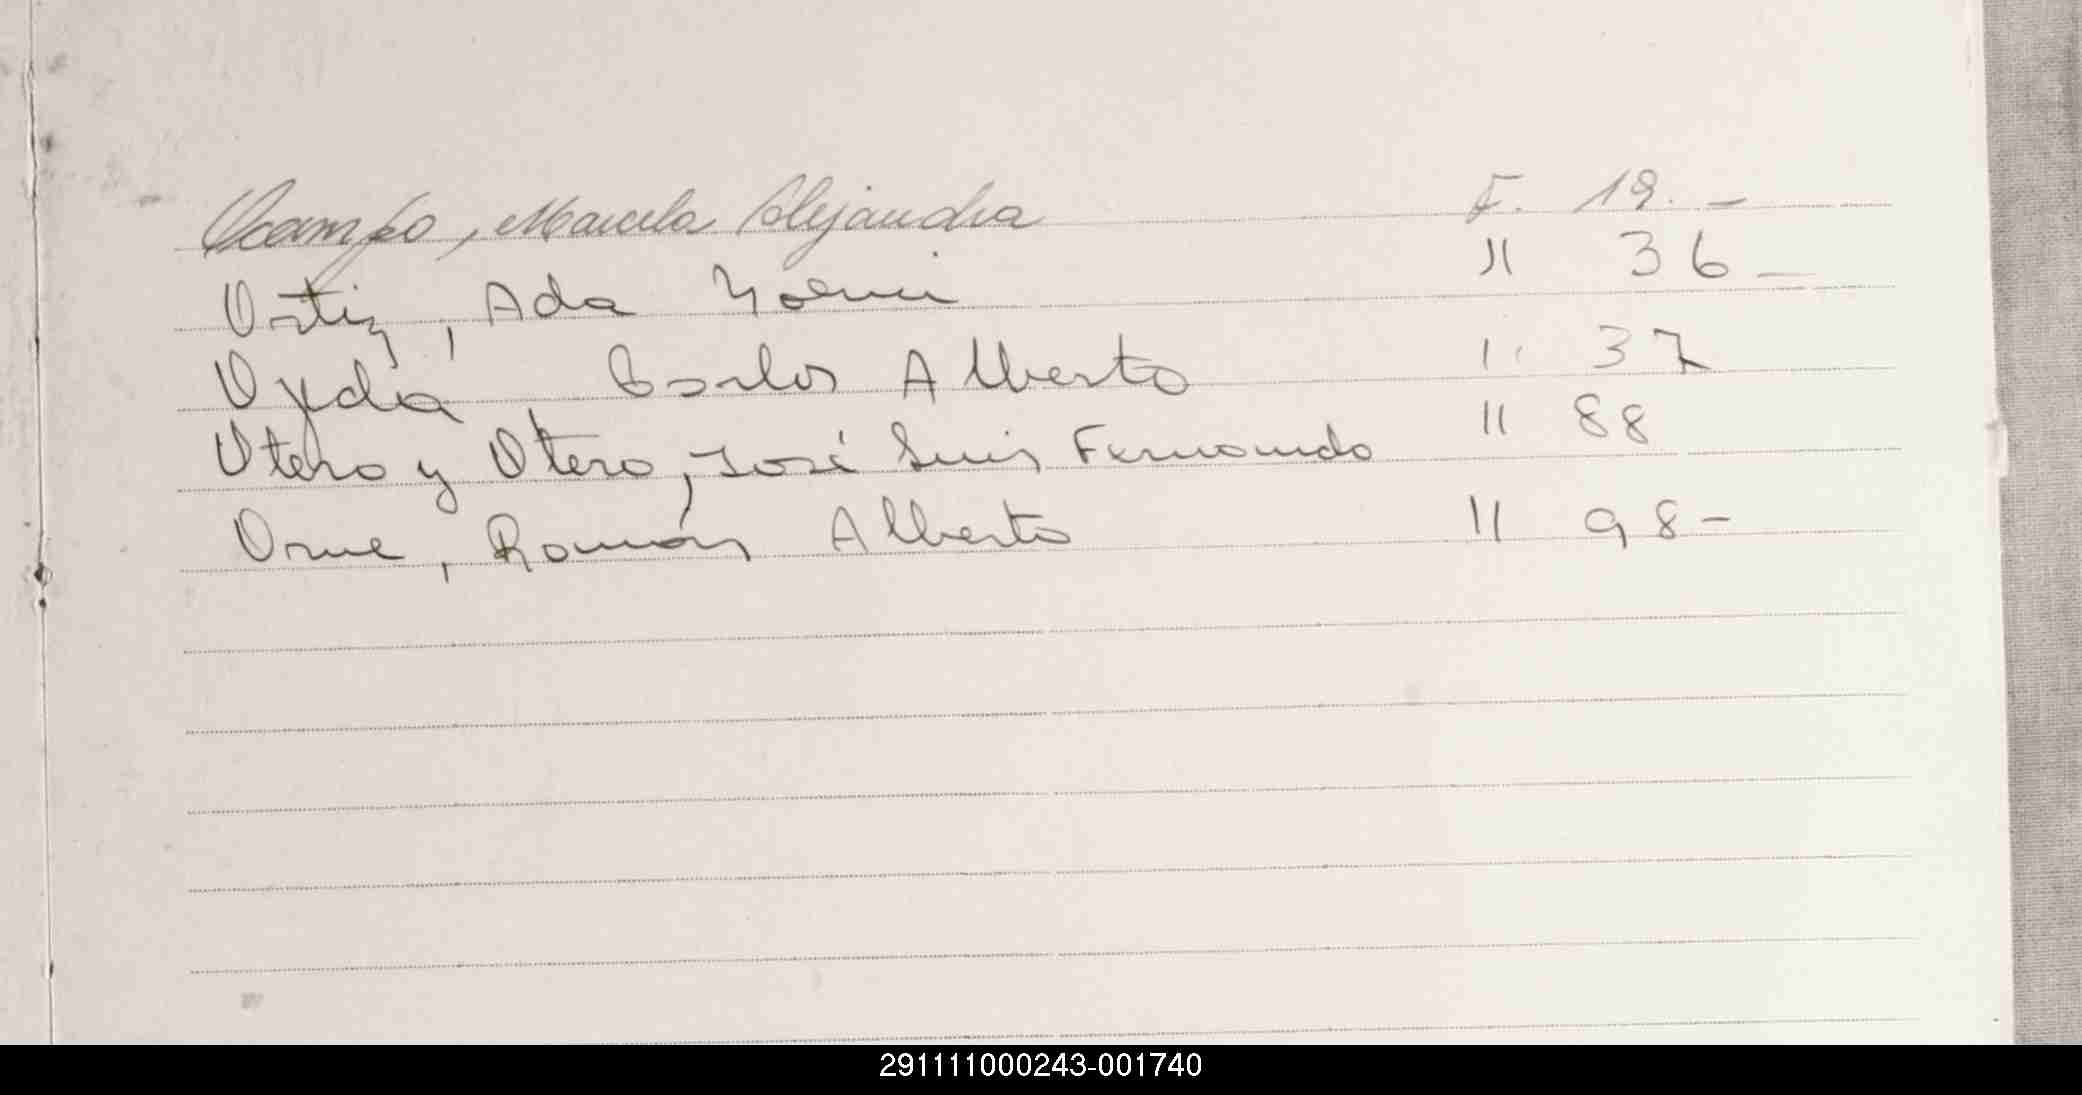 Ocampo, Marcela Alejandra F. 19. -
Ortiz, Ada Noemi " 36 -
Ojeda, Carlos Alberto " 37
Otero y Otero, José Luis Fernando " 88
Orue, Román Alberto " 98 -
291111000243-001740